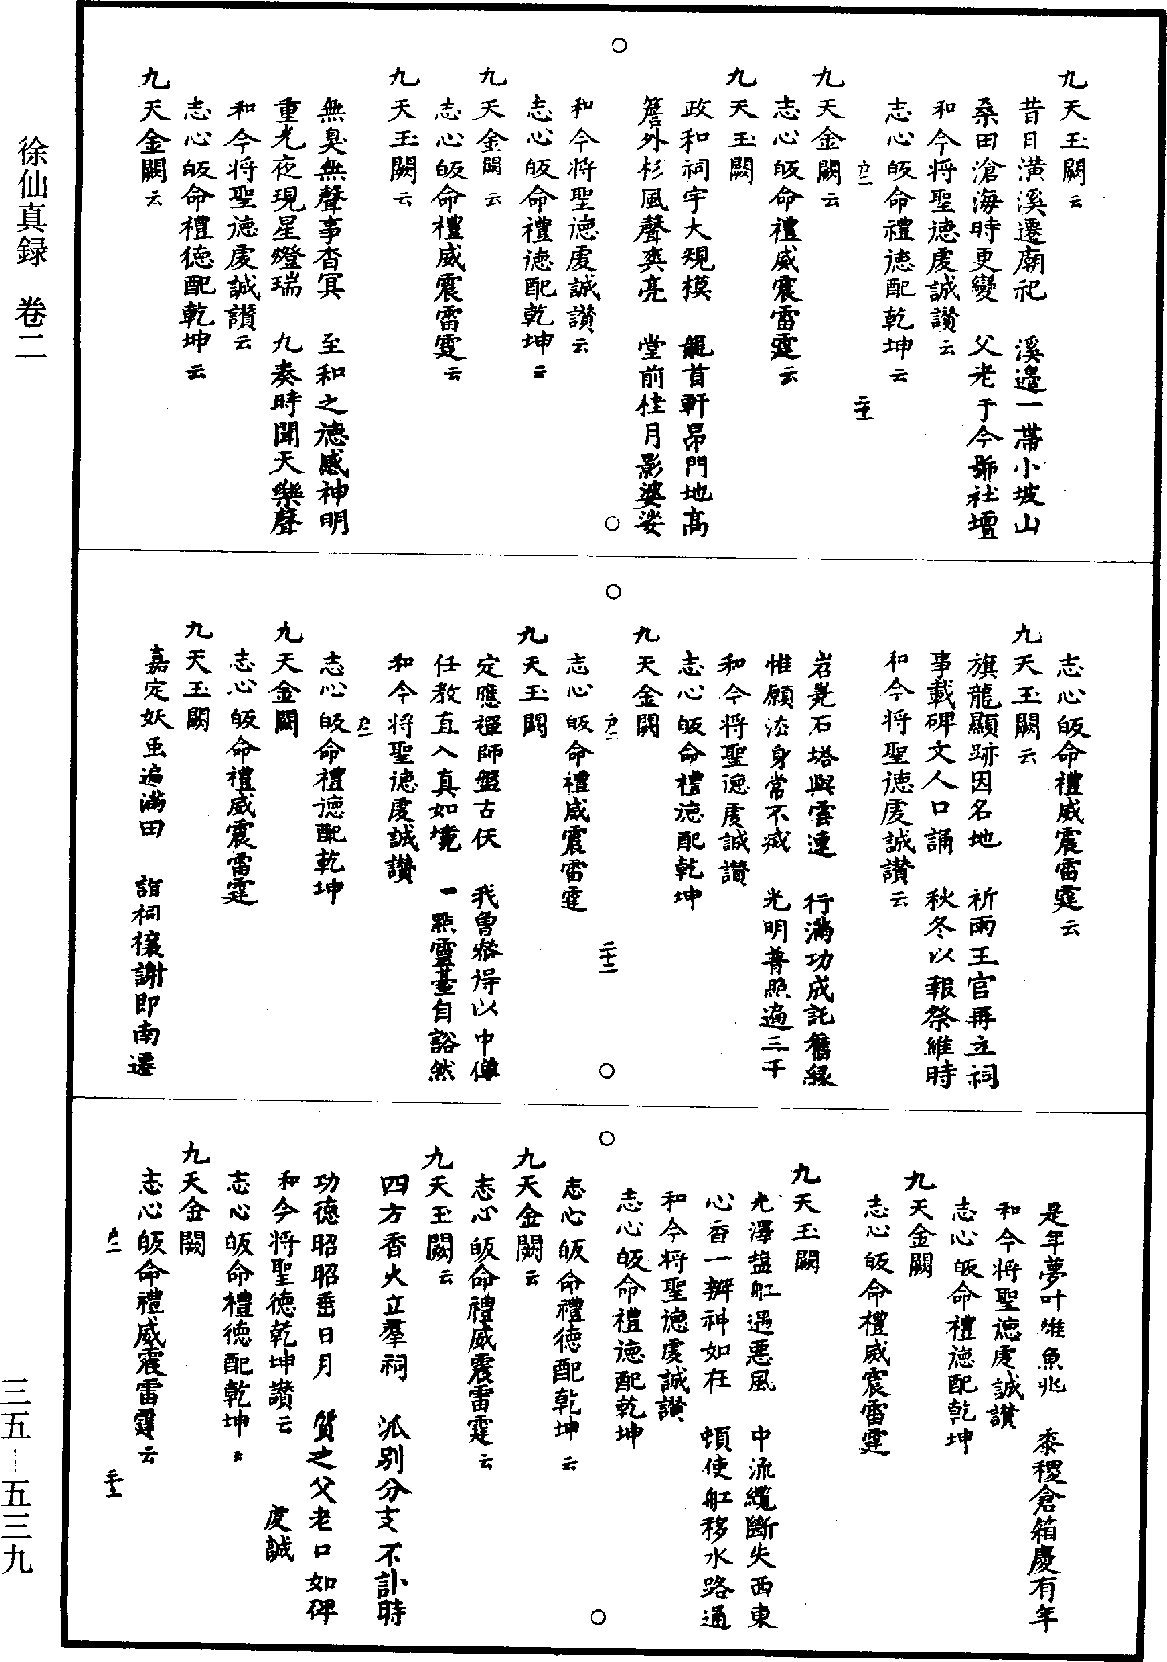 九天玉闕云
昔日潢溪遷廟祀　溪邉一帶小坡山
桑田滄海時更變　父老于今號社壇
和今將聖徳虔誠讃云
志心皈命禮徳配乾坤云
九天金闕云
志心皈命禮威震雷霆云
九天玉闕
政和祠宇大規模　龍首軒昂門地髙
簷外杉風聲奕亮　堂前桂月影婆娑
和今將聖徳虔誠讃云
志心皈命禮徳配乾坤云
九天金闕云
志心皈命禮威震雷霆云
九天玉闕云
無臭無聲事杳冥　至和之徳感神明
重光夜現星燈瑞　九奏時聞天樂聲
和今將聖徳虔誠讃云
志心皈命禮徳配乾坤云
九天金闕云
志心皈命禮威震雷霆云
九天玉闕云
旗龍顯跡因名地　祈雨王官再立祠
事載碑文人口誦　秋冬以報祭維時
和今將聖徳虔誠讃云
岩嶤石塔與雲連　行滿功成託舊緣
惟願法身常不滅　光明普照遍三千
和今將聖徳虔誠讃
志心皈命禮徳配乾坤
九天金闕
志心皈命禮威震雷霆
九天玉闕
定應禪師盤古仸　我曾叅得以中傳
任教直入真如境　一㸃靈臺自豁然
和今將聖徳虔誠讃
志心皈命禮徳配乾坤
九天金闕
志心皈命禮威震雷霆
九天玉闕
嘉定妖䖝遍滿田　詣祠禳謝即南遷
是年夢叶惟魚兆　黍稷倉箱慶有年
和今將聖徳虔誠讃
志心皈命禮徳配乾坤
九天金闕
志心皈命禮威震雷霆
九天玉闕
光澤鹽舡遇惡風　中流纜斷失西東
心香一瓣神如在　頓使舡移水路通
和今將聖徳虔誠讃
志心皈命禮徳配乾坤
志心皈命禮徳配乾坤云
九天金闕云
志心皈命禮威震雷霆云
九天玉闕云
四方香火立羣祠　派別分支不訃時
功徳昭昭垂日月　質之父老口如碑
和今將聖徳乾坤讃云　虔誠
志心皈命禮徳配乾坤云
九天金闕
志心皈命禮威震雷霆云
徐仙真録　卷二
三五—五三九